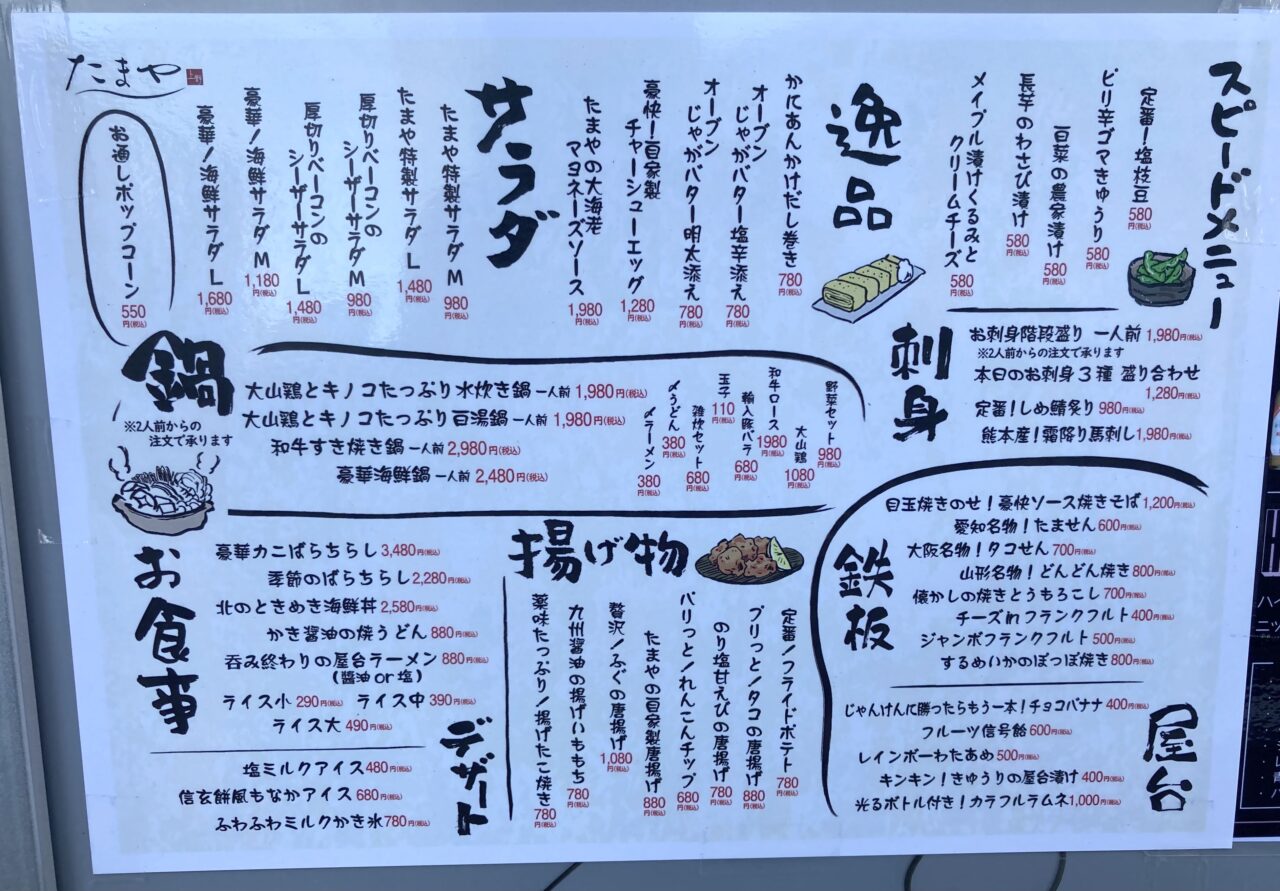 スピードメニュー
定番!塩枝豆
580円(税込)
ピリ辛ゴマきゅうり
580円(税込)
豆菜の農家漬け
580円(税込)
長芋のわさび漬け
580円(税込)
メイプル漬けくるみと
クリームチーズ
580円(税込)
逸品
かにあんかけだし巻き
780円(税込)
オーブン
じゃがバター塩辛添え
780円(税込)
オーブン
じゃがバター明太添え
780円(税込)
豪快!自家製
チャーシューエッグ
1,280円(税込)
たまやの大海老
マヨネーズソース
1,980円(税込)
サラダ
たまや特製サラダM
980円(税込)
たまや特製サラダL
1,480円(税込)
厚切りベーコンの
シーザーサラダM
980円(税込)
厚切りベーコンの
シーザーサラダL
1,480円(税込)
豪華!海鮮サラダM
1,180円(税込)
豪華!海鮮サラダL
1,680円(税込)
たまや
お通しポップコーン
550円(税込)
刺身
お刺身階段盛り 一人前 1,980円(税込)
※2人前からの注文で承ります
本日のお刺身3種 盛り合わせ
1,280円(税込)
定番!しめ鯖炙り 980円(税込)
熊本産!霜降り馬刺し 1,980円(税込)
鍋
※2人前からの
注文で承ります
大山鶏とキノコたっぷり水炊き鍋 一人前 1,980円(税込)
大山鶏とキノコたっぷり白湯鍋 一人前 1,980円(税込)
和牛すき焼き鍋 一人前 2,980円(税込)
豪華海鮮鍋 一人前 2,480円(税込)
野菜セット
980円(税込)
大山鶏
1080円(税込)
和牛ロース
1980円(税込)
輸入豚バラ
680円(税込)
玉子
110円(税込)
雑炊セット
680円(税込)
〆うどん
380円(税込)
〆ラーメン
380円(税込)
鉄板
目玉焼きのせ!豪快ソース焼きそば 1,200円(税込)
愛知名物!たません 600円(税込)
大阪名物!タコせん 700円(税込)
山形名物!どんどん焼き 800円(税込)
懐かしの焼きとうもろこし 700円(税込)
チーズinフランクフルト 400円(税込)
ジャンボフランクフルト 500円(税込)
するめいかのぽっぽ焼き 800円(税込)
屋台
じゃんけんに勝ったらもう一本!チョコバナナ 400円(税込)
フルーツ信号飴 600円(税込)
レインボーわたあめ 500円(税込)
キンキン!きゅうりの屋台漬け 400円(税込)
光るボトル付き!カラフルラムネ 1,000円(税込)
揚げ物
定番!フライドポテト
780円(税込)
プリっと!タコの唐揚げ
880円(税込)
のり塩甘えびの唐揚げ
780円(税込)
パリっと!れんこんチップ
680円(税込)
たまやの自家製唐揚げ
880円(税込)
贅沢!ふぐの唐揚げ
1,080円(税込)
九州醤油の揚げいももち
780円(税込)
薬味たっぷり!揚げたこ焼き
780円(税込)
お食事
豪華カニばらちらし 3,480円(税込)
季節のばらちらし 2,280円(税込)
北のときめき海鮮丼 2,580円(税込)
かき醤油の焼うどん 880円(税込)
呑み終わりの屋台ラーメン 880円(税込)
(醤油or塩)
ライス小 290円(税込) ライス中 390円(税込)
ライス大 490円(税込)
デザート
塩ミルクアイス 480円(税込)
信玄餅風もなかアイス 680円(税込)
ふわふわミルクかき氷 780円(税込)